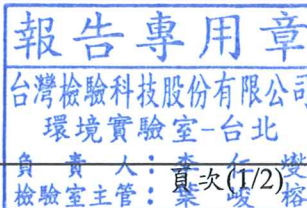 報告專用章
台灣檢驗科技股份有限公司
環境實驗室-台北
負責人:李
頁次(1/2)
檢驗室主管:葉峻榕